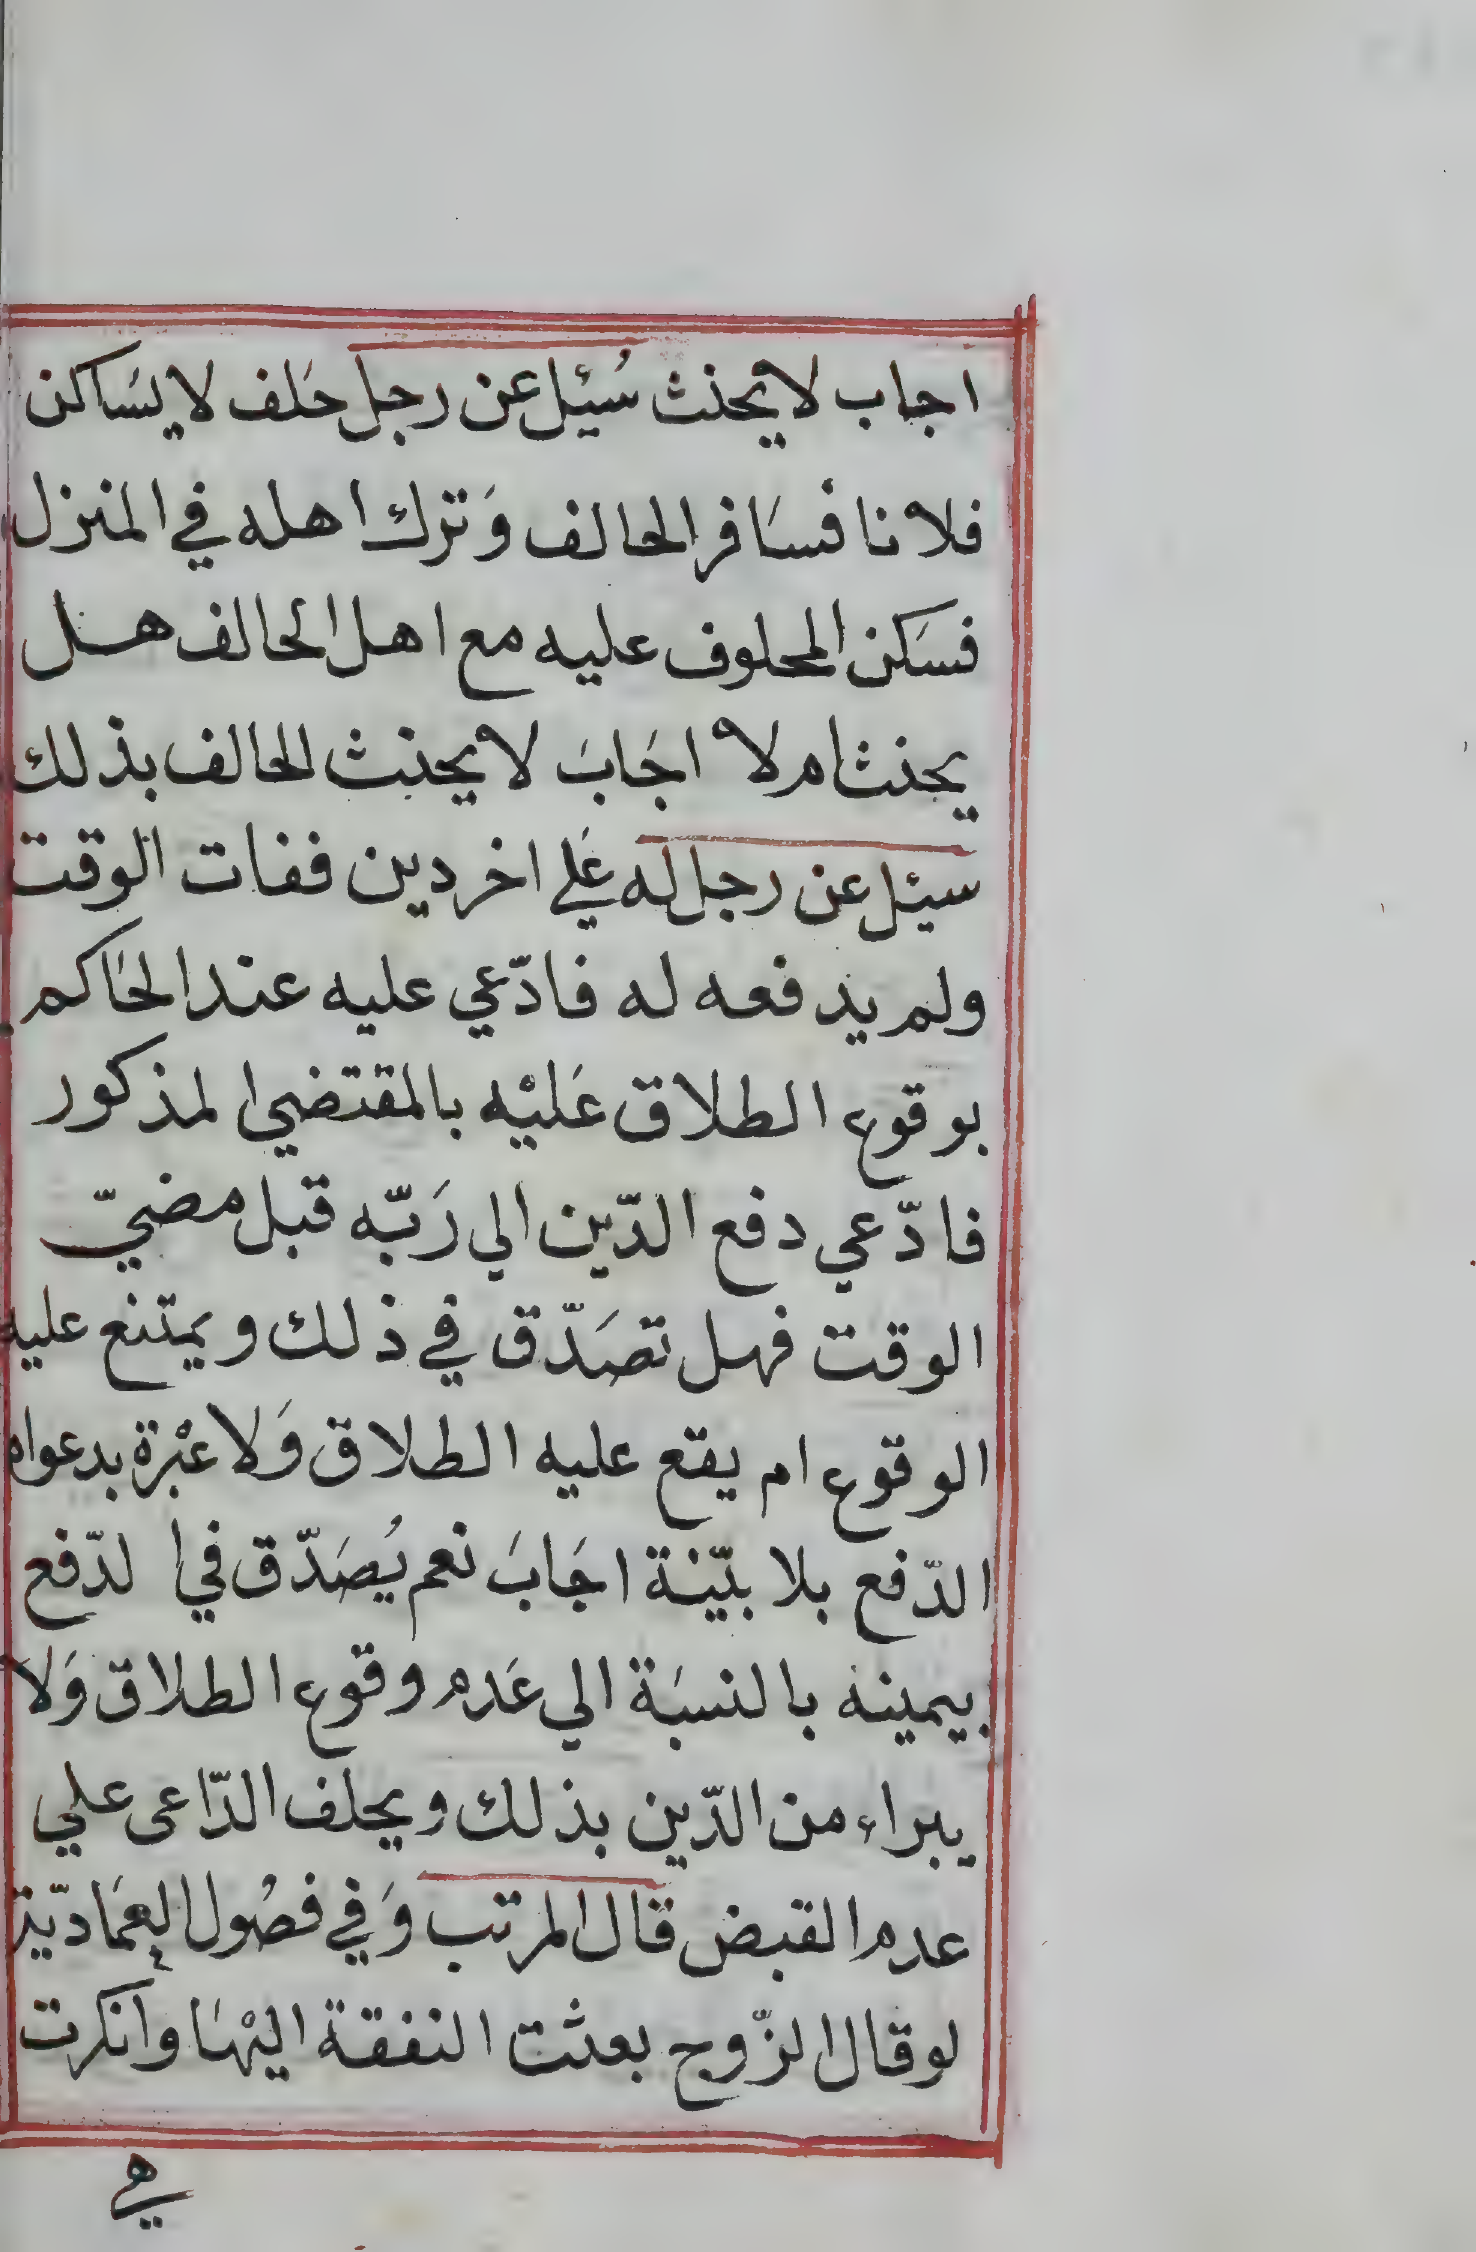 اجاب لا يحنث سُئِل عن رجل حَلف لا يسَاكن
فلانا فسَافر الحالف وَترك اهله في المنزل
فسَكن المحلوف عليه مع اهل الحالف هل
يحنث ام لا اجَابَ لا يحنث الحالف بذلك
سيئل عن رجل له عَلي اخر دين ففات الوقت
ولم يدفعه له فادّعي عليه عند الحَاكم
بوقوع الطلاق عَليْه بالمقتضي المذكور
فادّعي دفع الدّين الي رَبّه قبل مضيّ
الوقت فهل تصَدّق في ذلك ويمتنع عليه
الوقوع ام يقع عليه الطلاق وَلا عبْرة بدعواه
الدّفع بلا بيّنة اجَابَ نعم يُصَدّق في الدّفع
بيمينه بالنسبَة الي عَدم وقوع الطلاق وَلا
يبراء من الدّين بذلك ويحلف الدّاعى علي
عدم القبض قال المرتب وَفي فصُول العمَاديّة
لو قال الزّوج بعثت النفقة اليْهَا وانكرت
هي